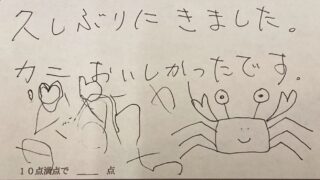 久しぶりにきました。
カニ おいしかったです。
か
か ち
10点満点で ___ 点